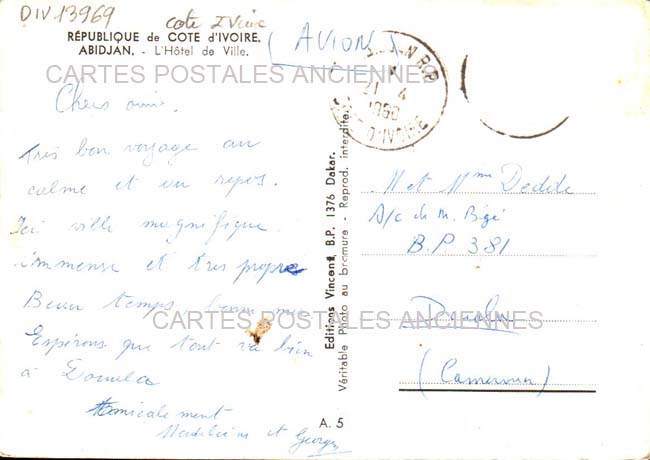 DIV13969
Cote IVoire
RÉPUBLIQUE de COTE d'IVOIRE.
ABIDJAN. - L'Hôtel de Ville.
(AVION)
R.P.
21 4
1960
COTE D'IVOIRE
CARTES POSTALES ANCIENNES
Chers amis.
Très bon voyage au
calme et en repos.
Ici ville magnifique.
immense et très propre
Beau temps bonne
Espérons que tout va bien
à Douala
Amicalement
Madeleine et Georges
Editions Vincent, B.P. 1376 Dakar.
Véritable Photo au bromure - Reprod. interdite.
A. 5
M et Mme
A/c de M.
B.P 381
Douala
(Cameroun)
CARTES POSTALES ANCIENNES